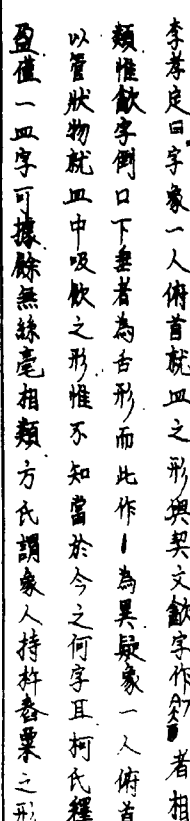 李孝定曰字象一人俯首就皿之形與契文㱃字作者相
類惟㱃字倒口下垂者為舌形而此作丨為異疑象一人俯首
以管狀物就皿中吸飲之形惟不知當於今之何字且柯氏釋
盈僅一皿字可據餘無絲毫相類方氏謂象人持杵舂粟之形